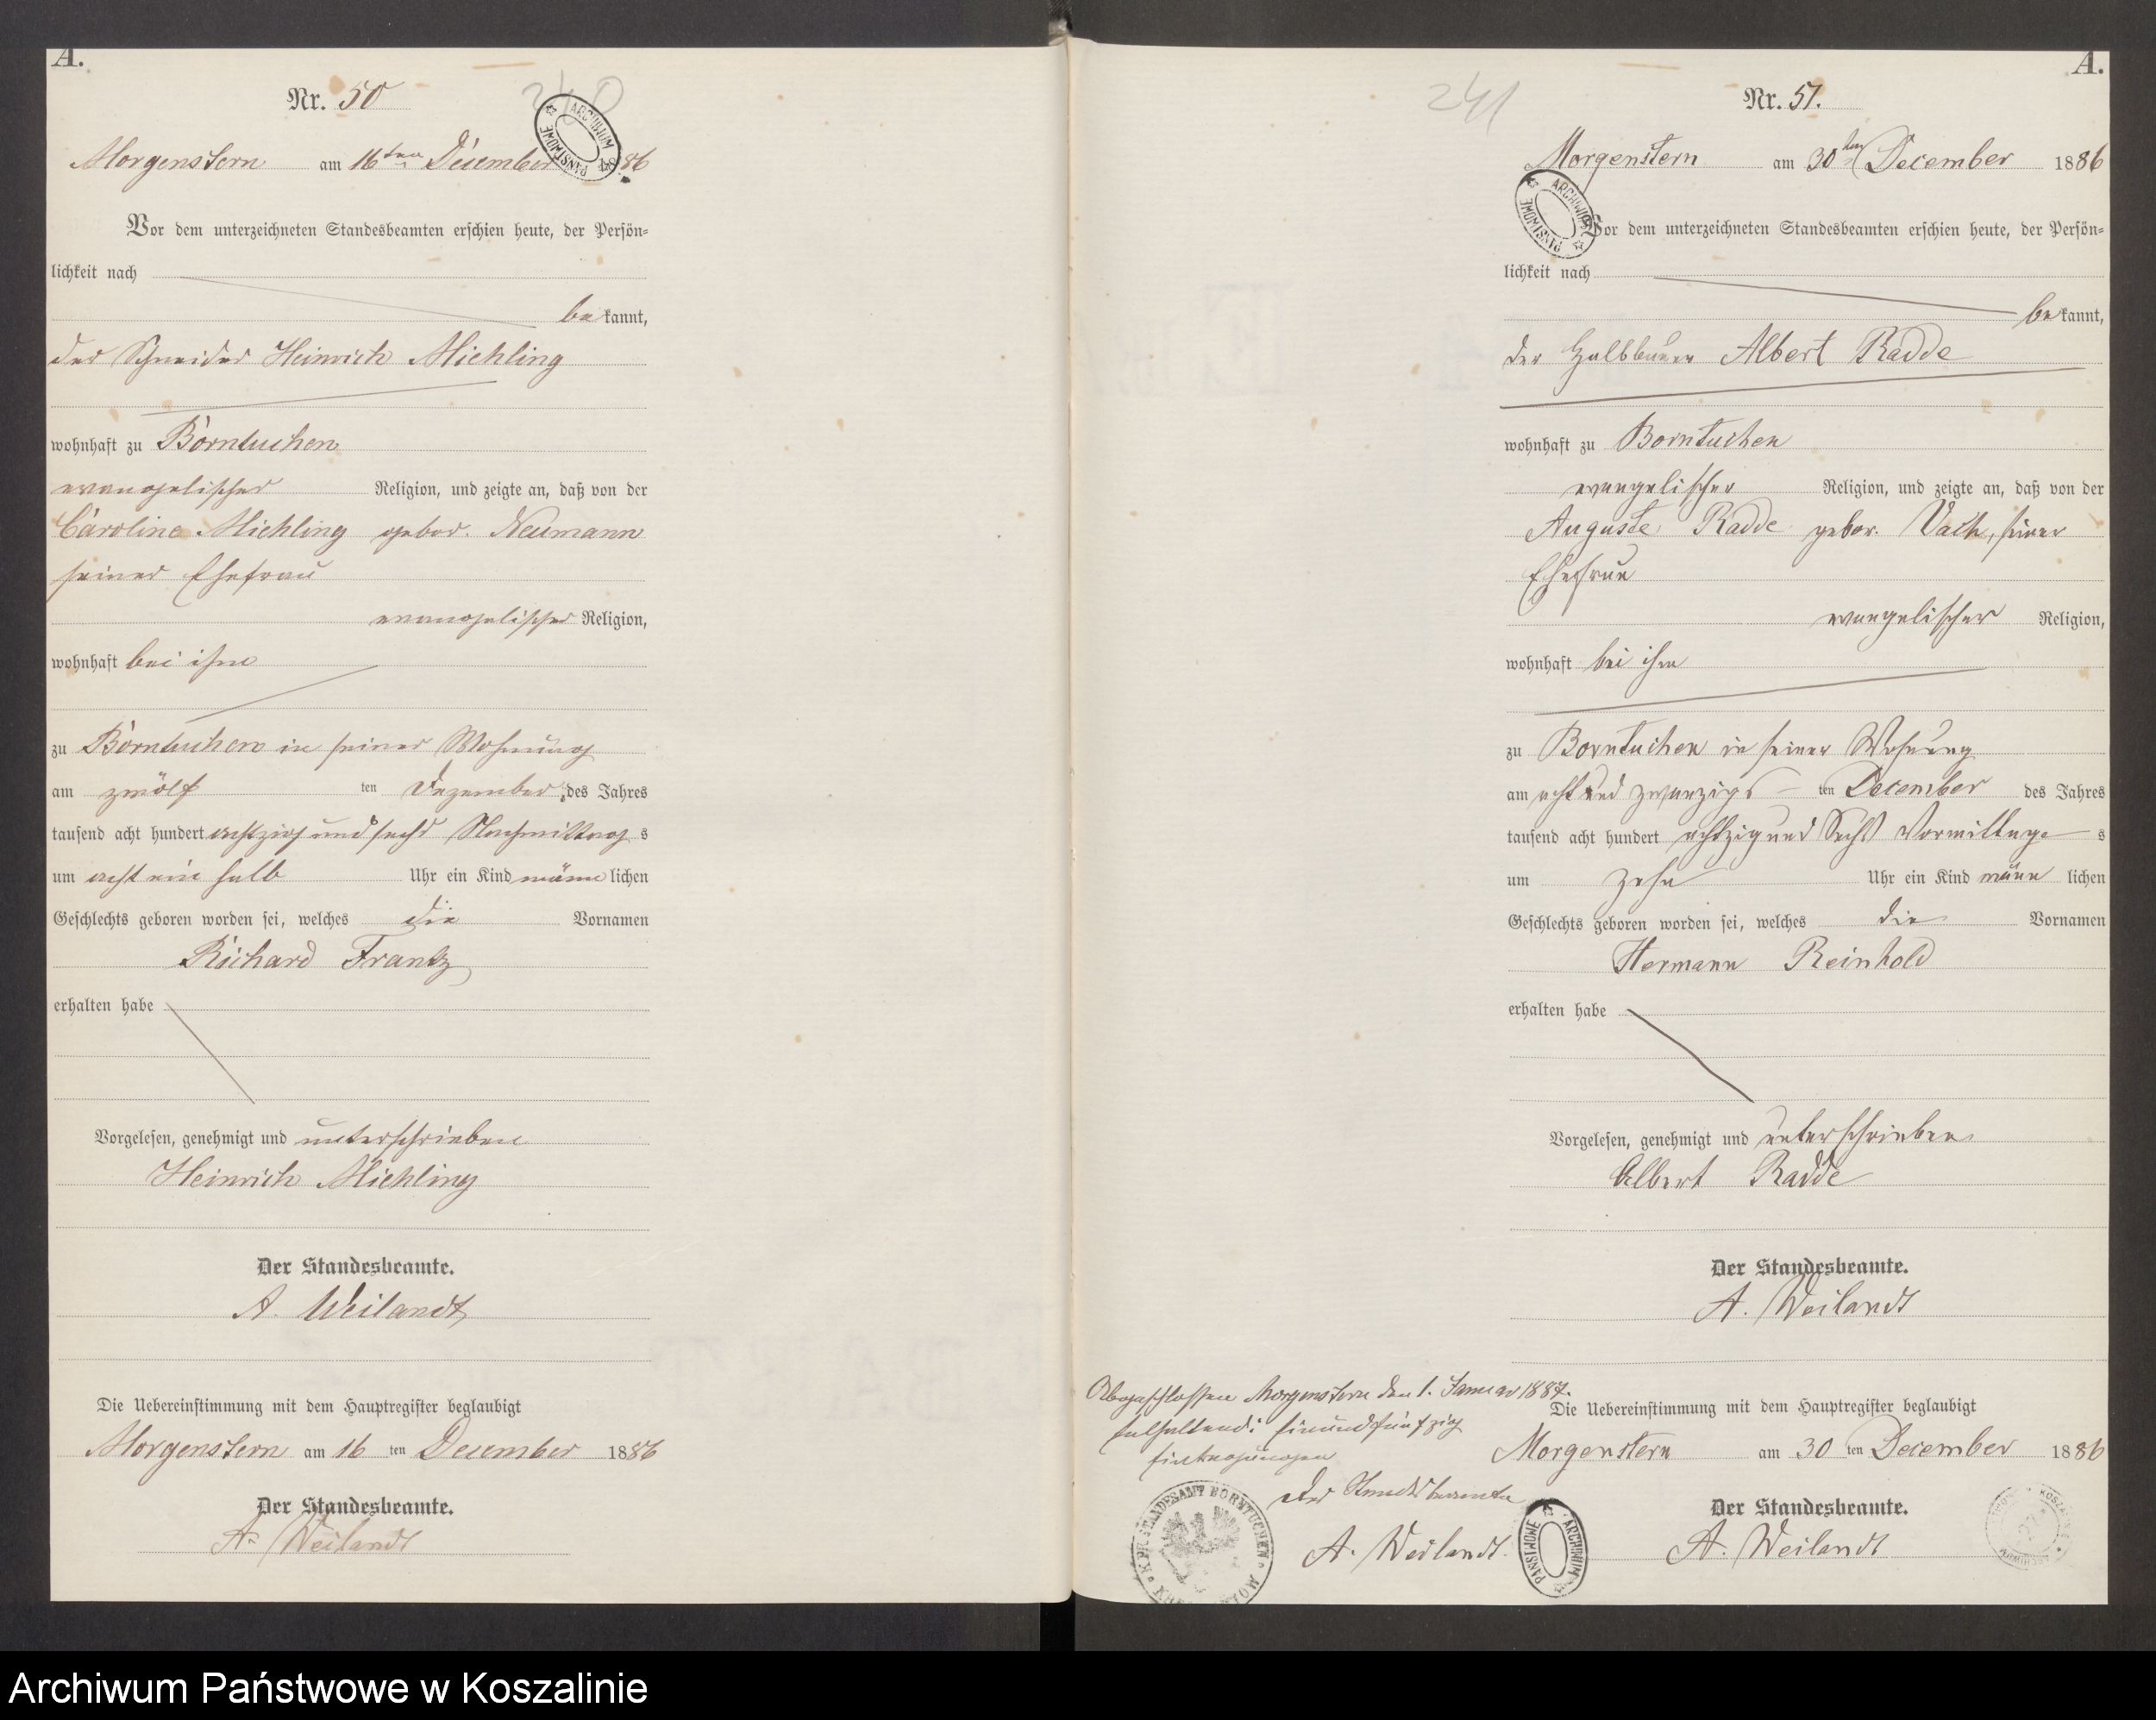 A.
Nr. 50
240
Morgenstern am 16ten December 1886
Vor dem unterzeichneten Standesbeamten erschien heute, der Persön=
lichkeit nach
bekannt,
der Schneider Heinrich Michling
wohnhaft zu Borntuchen
evangelischer Religion, und zeigte an, daß von der
Caroline Michling gebor. Neumann
seiner Ehefrau
evangelischer Religion,
wohnhaft bei ihm
zu Borntuchen in seiner Wohnung
am zwölf ten Dezember des Jahres
tausend acht hundert achtzig und sechs Nachmittag s
um acht ein halb Uhr ein Kind männlichen
Geschlechts geboren worden sei, welches die Vornamen
Richard Frantz
erhalten habe
Vorgelesen, genehmigt und unterschrieben
Heinrich Michling
Der Standesbeamte.
A. Weilandt
Die Uebereinstimmung mit dem Hauptregister beglaubigt
Morgenstern am 16 ten December 1886
Der Standesbeamte.
A. Weilandt
ARCHIWUM PAŃSTWOWE
A.
Nr. 51.
241
Morgenstern am 30ten December 1886
ARCHIWUM PAŃSTWOWE
Vor dem unterzeichneten Standesbeamten erschien heute, der Persön=
lichkeit nach
bekannt,
der Halbbauer Albert Radde
wohnhaft zu Borntuchen
evangelischer Religion, und zeigte an, daß von der
Auguste Radde gebor. seiner
Ehefrau
evangelischer Religion,
wohnhaft bei ihm
zu Borntuchen in seiner Wohnung
am acht und zwanzigs ten December des Jahres
tausend acht hundert achtzig und Sechs Vormittags
um zehn Uhr ein Kind männ lichen
Geschlechts geboren worden sei, welches die Vornamen
Hermann Reinhold
erhalten habe
Vorgelesen, genehmigt und unterschrieben
Albert Radde
Der Standesbeamte.
A. Weilandt
Die Uebereinstimmung mit dem Hauptregister beglaubigt
Morgenstern am 30 ten December 1886
Der Standesbeamte.
A. Weilandt
Abgeschlossen Morgenstern den 1. Januar 1887.
enthaltend: einundfünfzig
Eintragungen
Der Standesbeamte
A. Weilandt.
K. PR. STANDESAMT BORNTUCHEN
ARCHIWUM PAŃSTWOWE
Archiwum Państwowe w Koszalinie